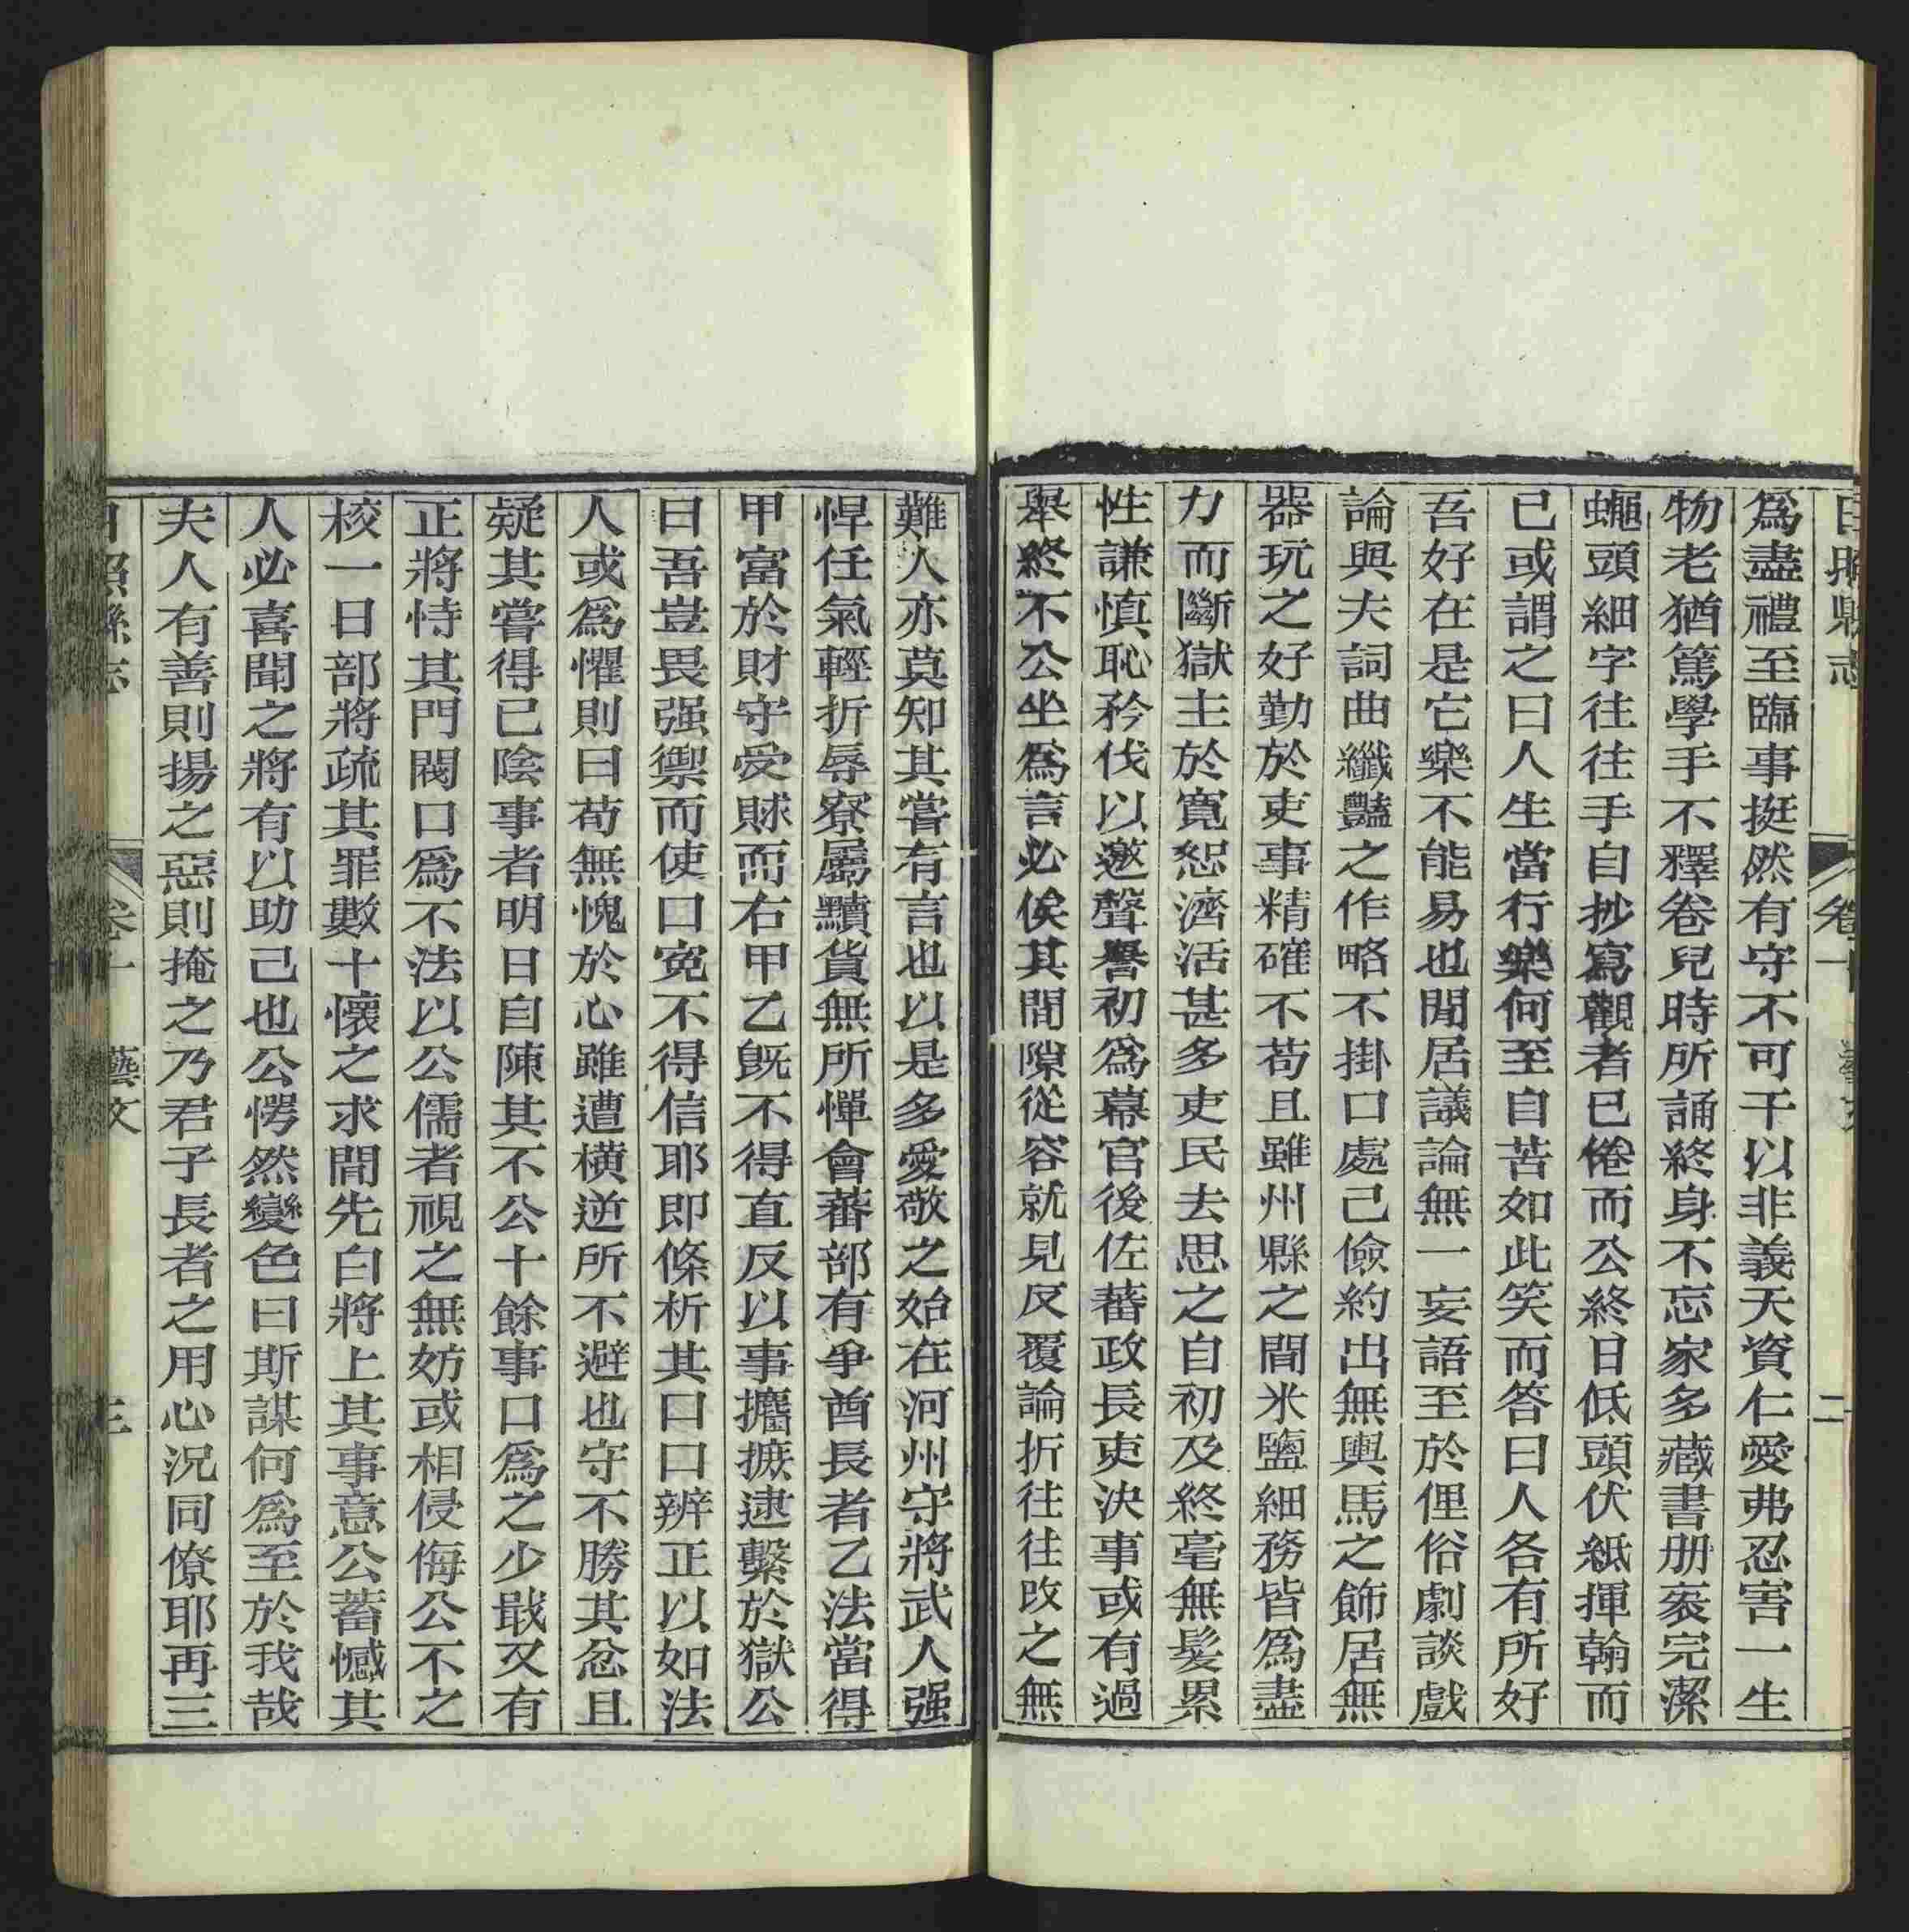 日照縣志 卷十 藝文 二
爲盡禮至臨事挺然有守不可干以非義天資仁愛弗忍害一生
物老猶篤學手不釋卷兒時所誦終身不忘家多藏書册袠完潔
蠅頭細字往往手自抄寫觀者已倦而公終日低頭伏紙揮翰而
已或謂之曰人生當行樂何至自苦如此笑而答曰人各有所好
吾好在是它樂不能易也閒居議論無一妄語至於俚俗劇談戲
論與夫詞曲纖豔之作略不掛口處己儉約出無輿馬之飾居無
器玩之好勤於吏事精確不苟且雖州縣之間米鹽細務皆爲盡
力而斷獄主於寬恕濟活甚多吏民去思之自初及終毫無髮累
性謙慎恥矜伐以邀聲譽初爲幕官後佐蕃政長吏決事或有過
舉終不公坐爲言必俟其間隙從容就見反覆論折往往改之無
難人亦莫知其嘗有言也以是多愛敬之始在河州守將武人强
悍任氣輕折辱寮屬黷貨無所憚會蕃部有爭酋長者乙法當得
甲富於財守受賕而右甲乙旣不得直反以事攟摭逮繫於獄公
曰吾豈畏强禦而使口寃不得信耶即條析其曰口辨正以如法
人或爲懼則曰苟無愧於心雖遭横逆所不避也守不勝其忿且
疑其嘗得已陰事者明日自陳其不公十餘事口爲之少戢又有
正將恃其門閥口爲不法以公儒者視之無妨或相侵侮公不之
校一日部將疏其罪數十懷之求間先白將上其事意公蓄憾其
人必喜聞之將有以助己也公愕然變色曰斯謀何爲至於我哉
夫人有善則揚之惡則掩之乃君子長者之用心況同僚耶再三
日照縣志 卷十 藝文 三